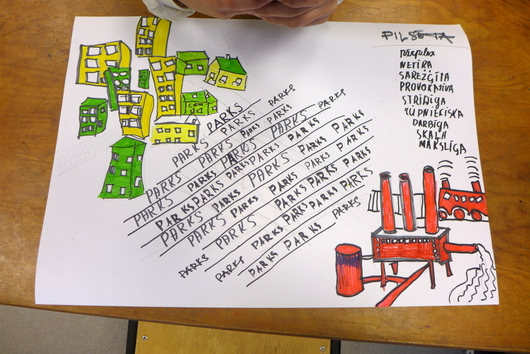 PILSĒTA
NETĪRA
SAREŽĢĪTA
PROVOKATĪVA
STRĪDĪGA
RŪPNIECISKA
DARBĪGA
SKAĻA
MĀKSLĪGA
PARKS
PARKS PARKS PARKS
PARKS PARKS PARKS PARKS
PARKS PARKS PARKS PARKS
PARKS PARKS PARKS PARKS PARKS
PARKS PARKS PARKS PARKS PARKS
PARKS PARKS PARKS PARKS
PARKS PARKS PARKS PARKS
PARKS PARKS PARKS PARKS
PARKS PARKS PARKS